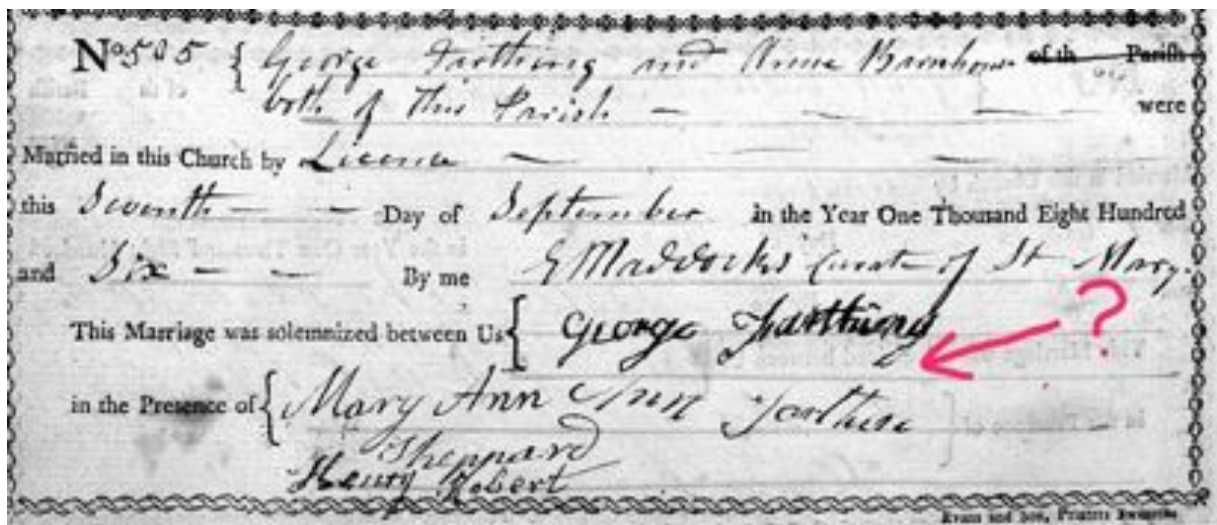 No. 505 { George Farthing and Anne of th Parish
both of this Parish were
Married in this Church by Licence
this Seventh Day of September in the Year One Thousand Eight Hundred
and Six By me G Maddocks Curate of St Mary.
?
This Marriage was solemnized between Us { George Farthing
in the Presence of { Mary Ann Ann Farthing
Sheppard
Henry Robert
Evans and Son, Printers Swansea